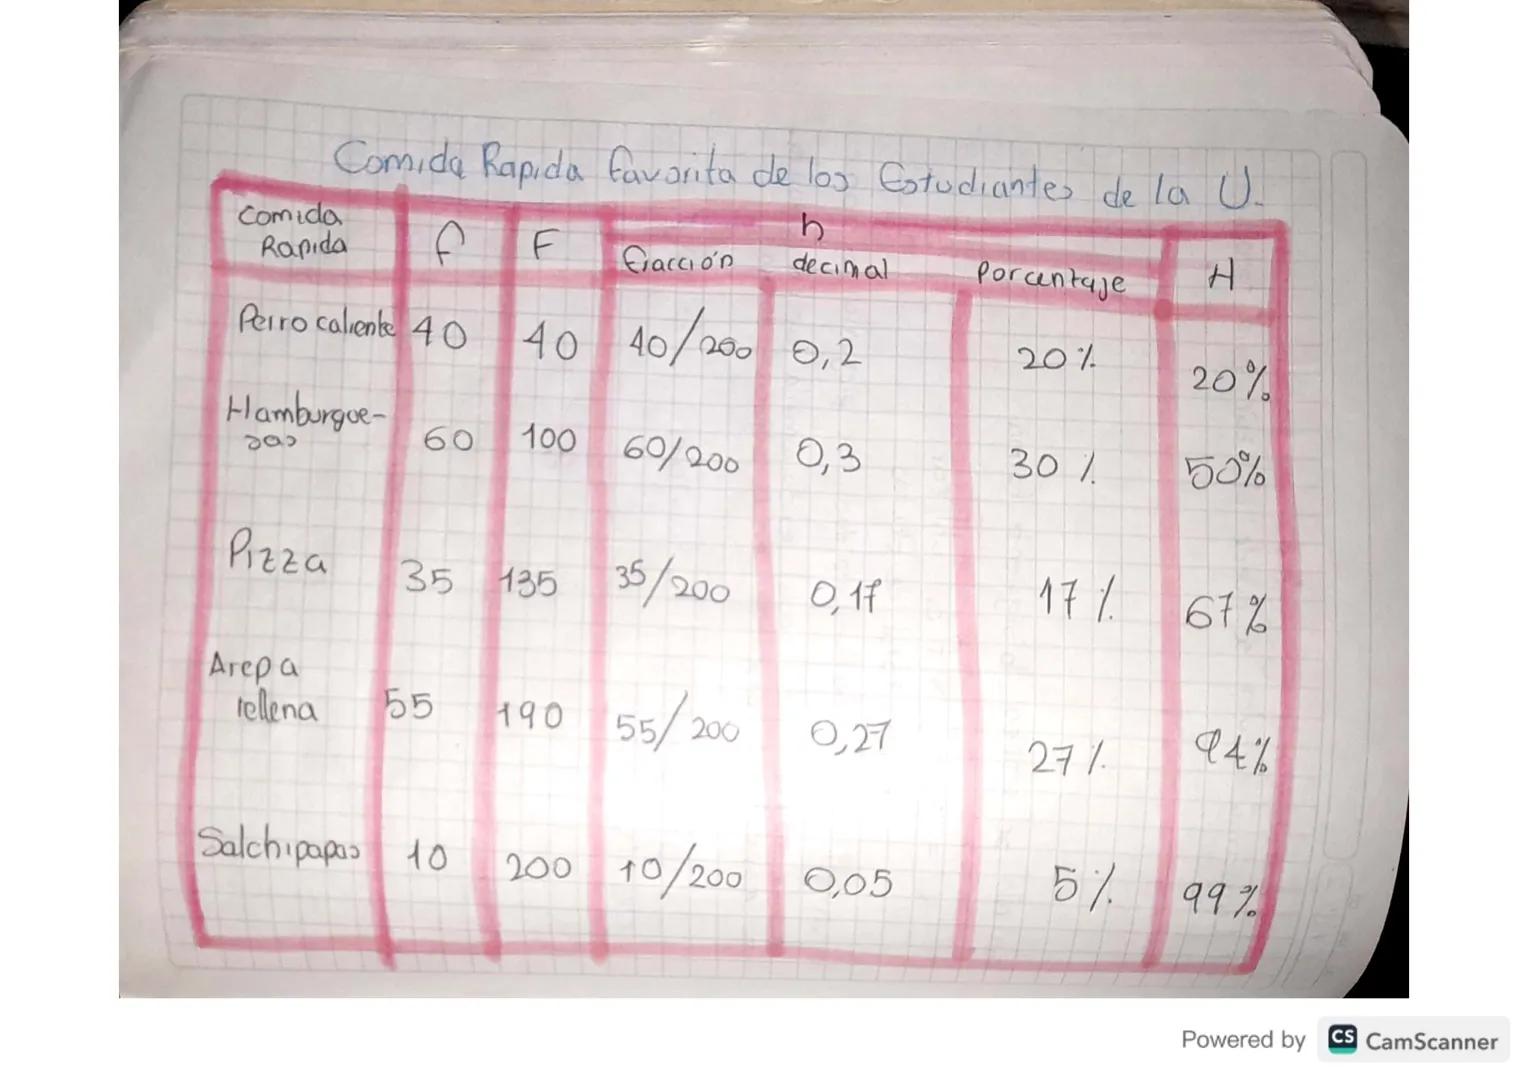 Comida Rapida favorita de los Estudiantes de la U.
Comida Rapida f F h H
fracción decimal Porcentaje
Perro caliente 40 40 40/200 0,2 20% 20%
Hamburgue-
sas 60 100 60/200 0,3 30% 50%
Pizza 35 135 35/200 0,17 17% 67%
Arepa
rellena 55 190 55/200 0,27 27% 94%
Salchipapas 10 200 10/200 0,05 5% 99%
Powered by CS CamScanner